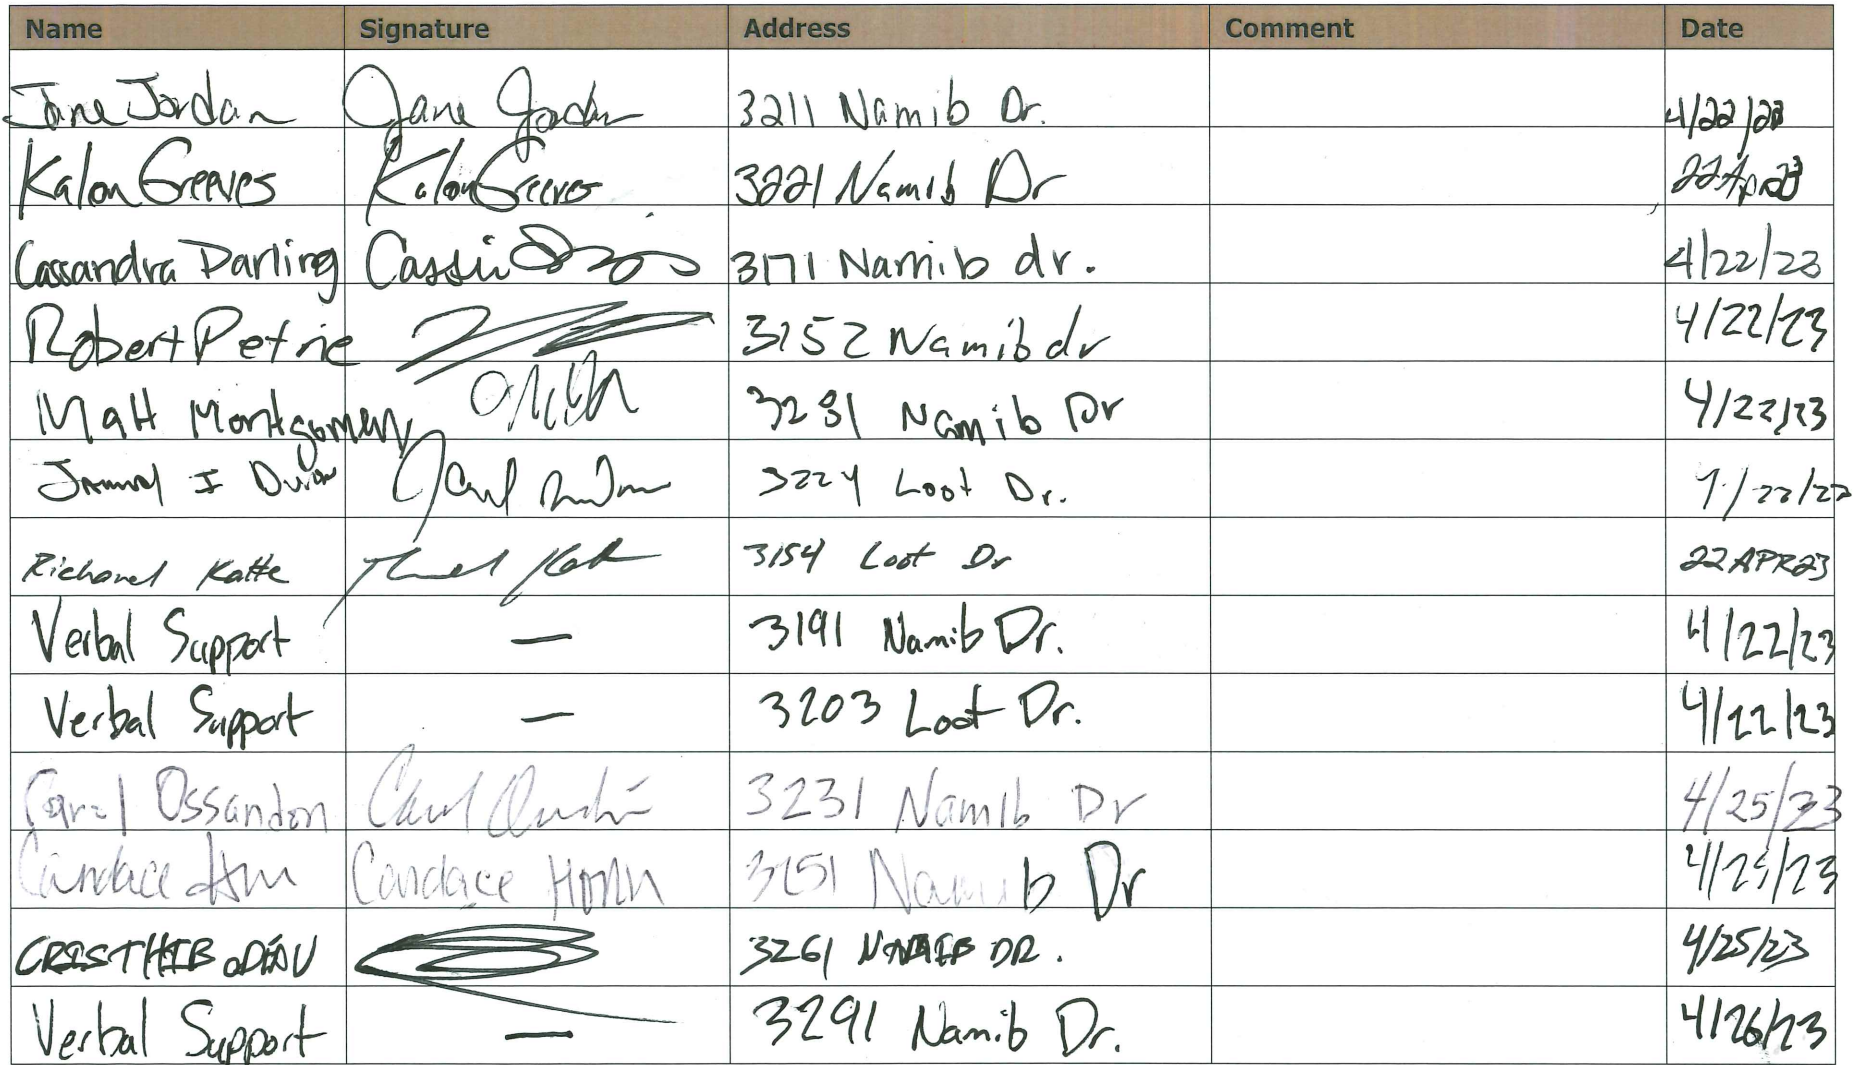 Name Signature Address Comment Date
Jane Jordan Jane Jordan 3211 Namib Dr. 4/22/23
Kalon Greeves Kalon Greeves 3221 Namib Dr 22Apr23
Cassandra Darling Cassi 3171 Namib dr. 4/22/23
Robert Petrie 3152 Namib dr 4/22/23
Matt Montgomery 3281 Namib Dr 4/22/23
I 3224 Loot Dr. /22/22
Richard Katte 3154 Loot Dr 22APR23
Verbal Support — 3191 Namib Dr. 4/22/23
Verbal Support — 3203 Loot Dr. 4/22/23
Carol Ossandon 3231 Namib Dr 4/25/23
Candace Candace Horn 3151 Namib Dr 4/25/23
CRISTHIBODEAU 3261 NAMIB DR. 4/25/23
Verbal Support — 3291 Namib Dr. 4/26/23